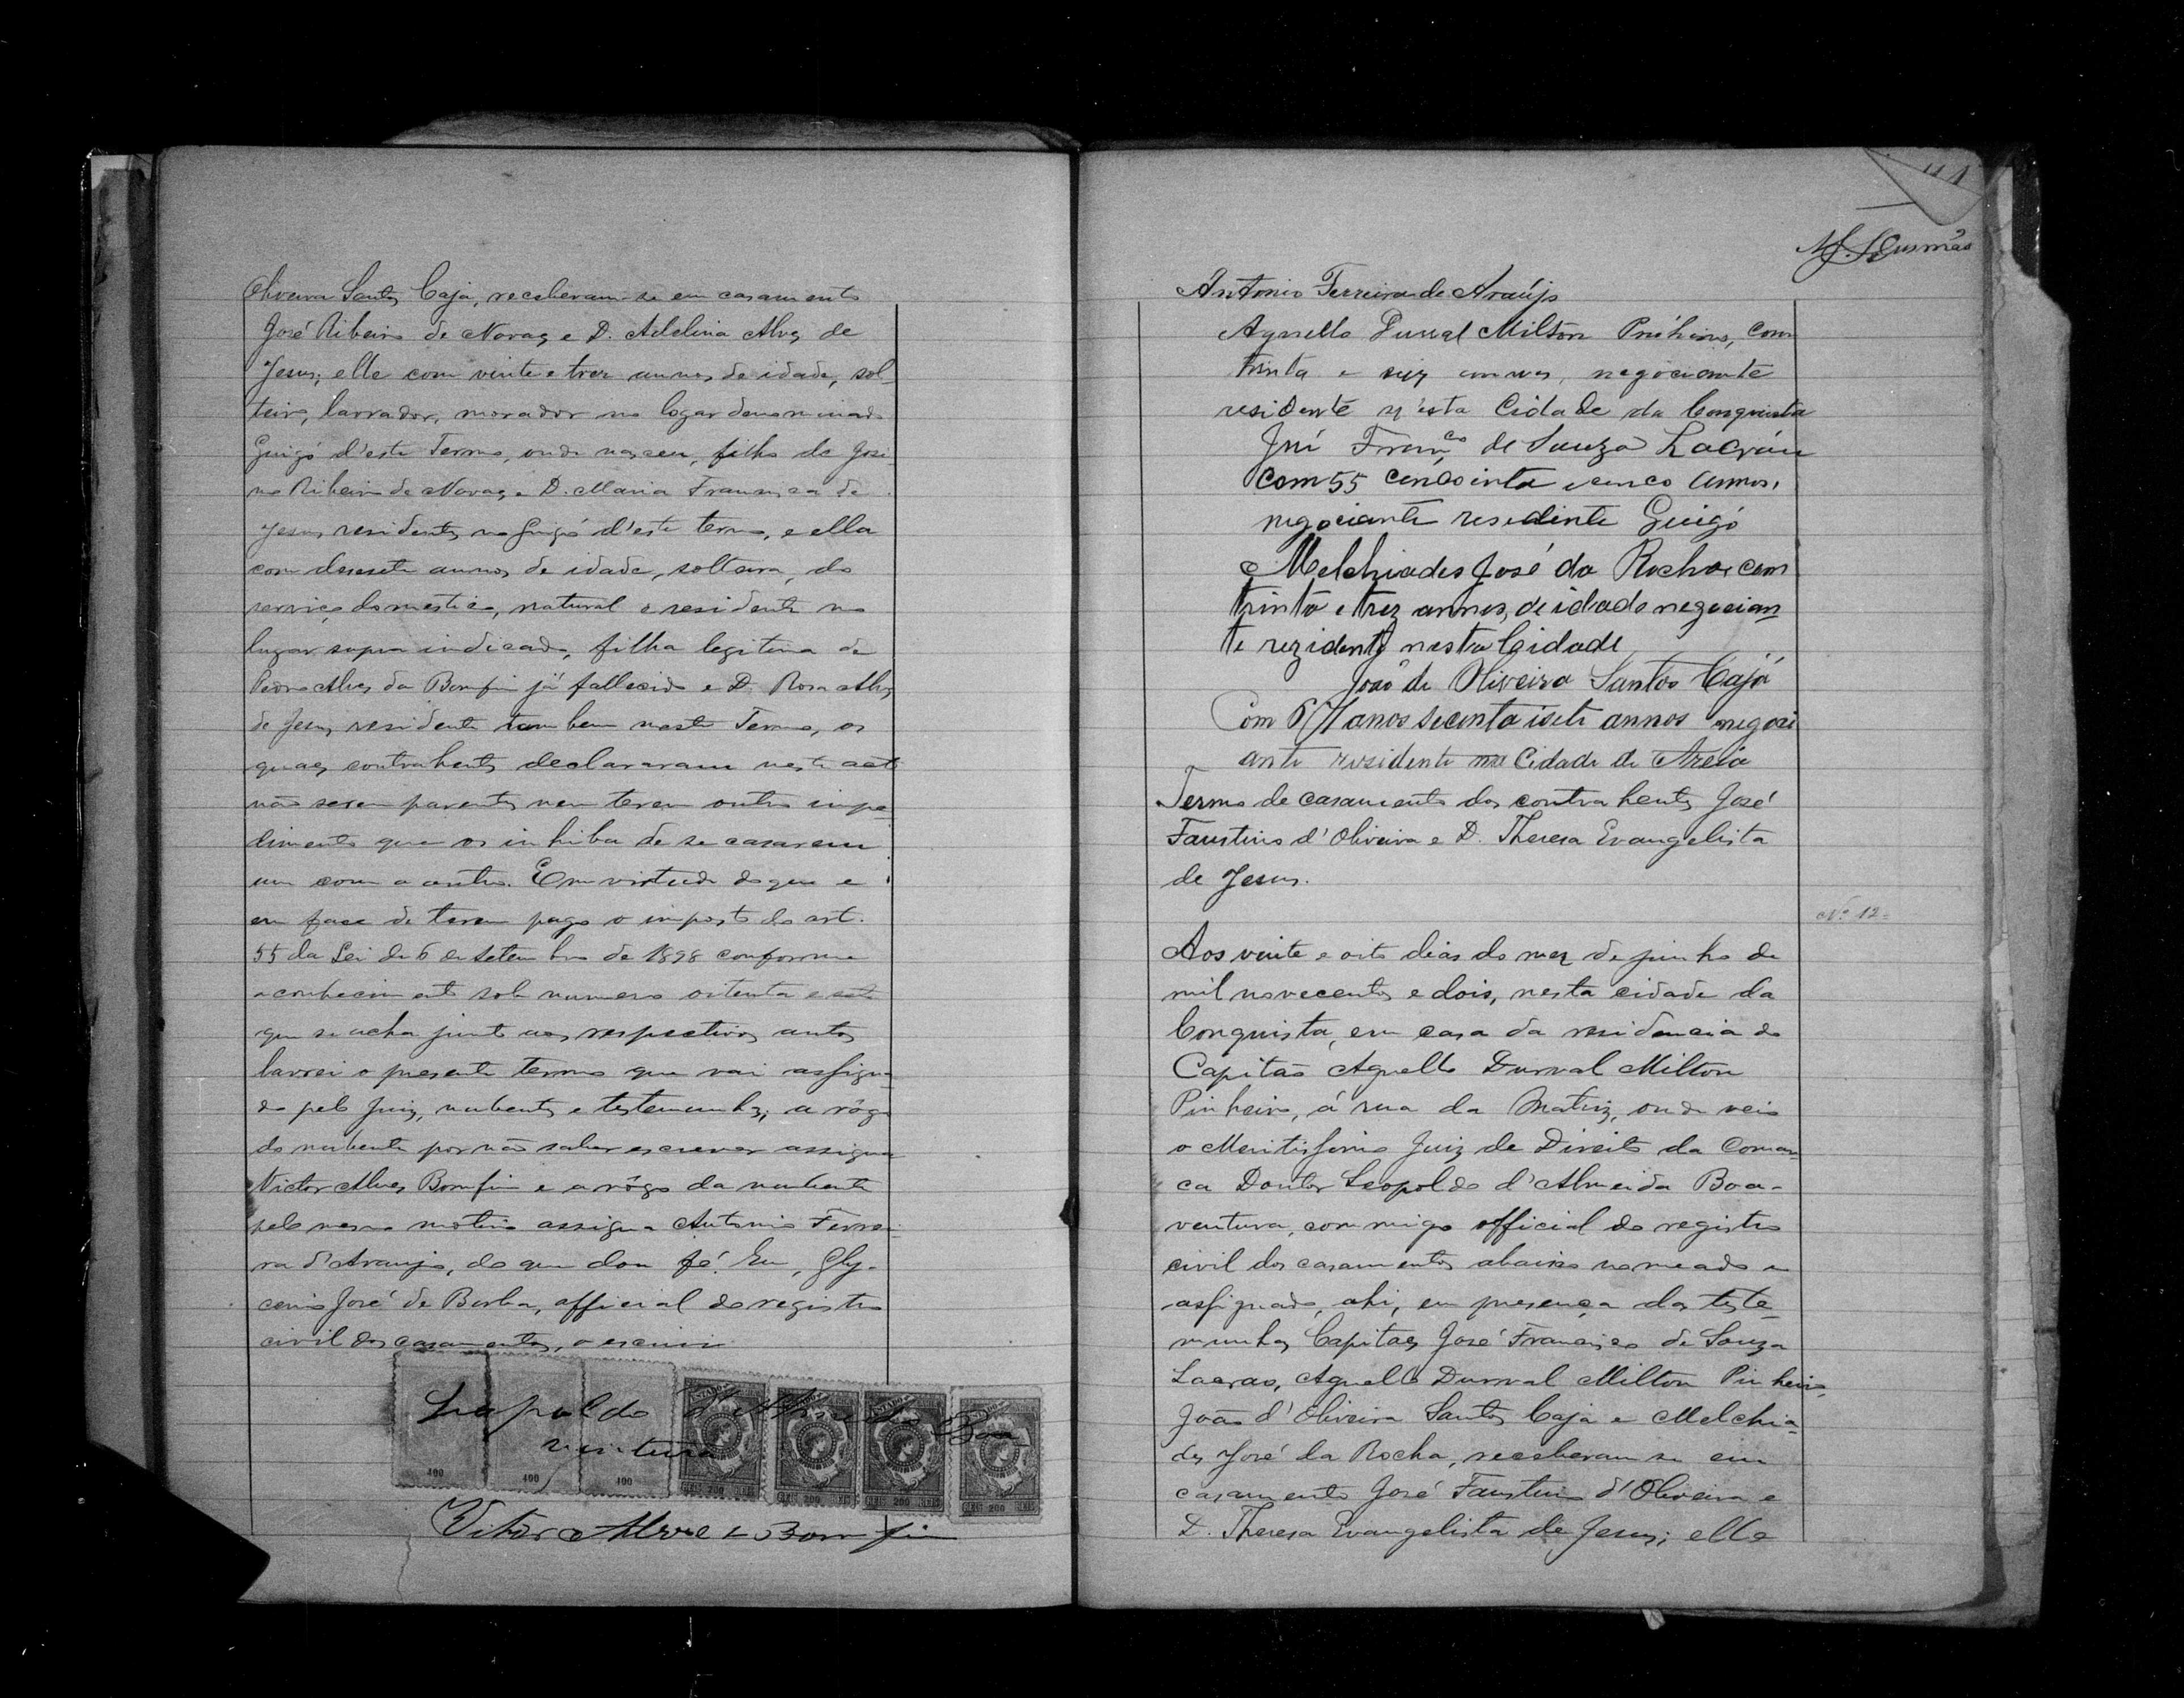 Oliveira Santos Cajá, receberam-se em casamento
José Ribeiro de Novaes e D. Adelina Alves de
Jesus; elle com vinte e trez annos de idade, sol-
teiro, lavrador, morador no logar denominado
Guigó d'este Termo, onde nasceu, filho de Josi-
no Ribeiro de Novaes e D. Maria Francisca de
Jesus, residentes no Guigó d'este termo, e ella
com desesete annos de idade, solteira, do
serviço domestico, natural e residente no
lugar supra indicado, filha legitima de
Pedro Alves do Bomfim já fallecido e D. Rosa Alves
de Jesus, residente tambem neste Termo, os
quaes contrahentes declararam neste acto
não serem parentes nem terem outro impe-
dimento que os inhiba de se casarem
um com o outro. Em virtude do que e
em face de terem pago o imposto do art.
55 da Lei de 6 de Setembro de 1898 conforme
o conhecimento sob numero oitenta e sete
que se acha junto aos respectivos autos
lavrei o presente termo que vai assigna-
do pelo Juiz, nubentes e testemunhas; a rôgo
do nubente por não saber escrever assigna
Victor Alves Bomfim e a rôgo da nubente
pelo mesmo motivo assigna Antonio Ferrei-
ra d'Araujo, do que dou fé. Eu, Gly-
cerio José de Borba, official do registro
civil dos casamentos, o escrevi
Leopoldo d'Almeida Boa
ventura
400
400
400
200
200
200
200
Vitor Alves Bomfim
M. S. Gusmão
Antonio Ferreira de Araújo
Agnello Durval Milton Pinheiro, com
trinta e seis annos, negociante
residente n'esta Cidade da Conquista
José Franco de Souza Lacráu
Com 55 cencointa e cinco annos,
negociante residente Guigó
Melchiades José da Rocha, com
trinta e trez annos, de idade negocian
te rezidente nesta Cidade
João de Oliveira Santos Cajá
Com 67 anos secenta isete annos negoci
ante residente na Cidade de Areia
Termo de casamento dos contrahentes José
Faustino d'Oliveira e D. Theresa Evangelista
de Jesus.
Nº 12=
Aos vinte e oito dias do mez de junho de
mil novecentos e dois, nesta cidade da
Conquista, em casa da residencia do
Capitão Agnello Durval Milton
Pinheiro, á rua da Matriz, onde veio
o Meritissimo Juiz de Direito da Comar
ca Doutor Leopoldo d'Almeida Boa-
ventura, commigo official do registro
civil dos casamentos abaixo nomeado e
assignado, ahi, em presença das teste-
munhas Capitães José Francisco de Souza
Lacrao, Agnello Durval Milton Pinheiro,
João d'Oliveira Santos Cajá e Melchia-
des José da Rocha, receberam-se em
casamento José Faustino d'Oliveira e
D. Theresa Evangelista de Jesus; elle